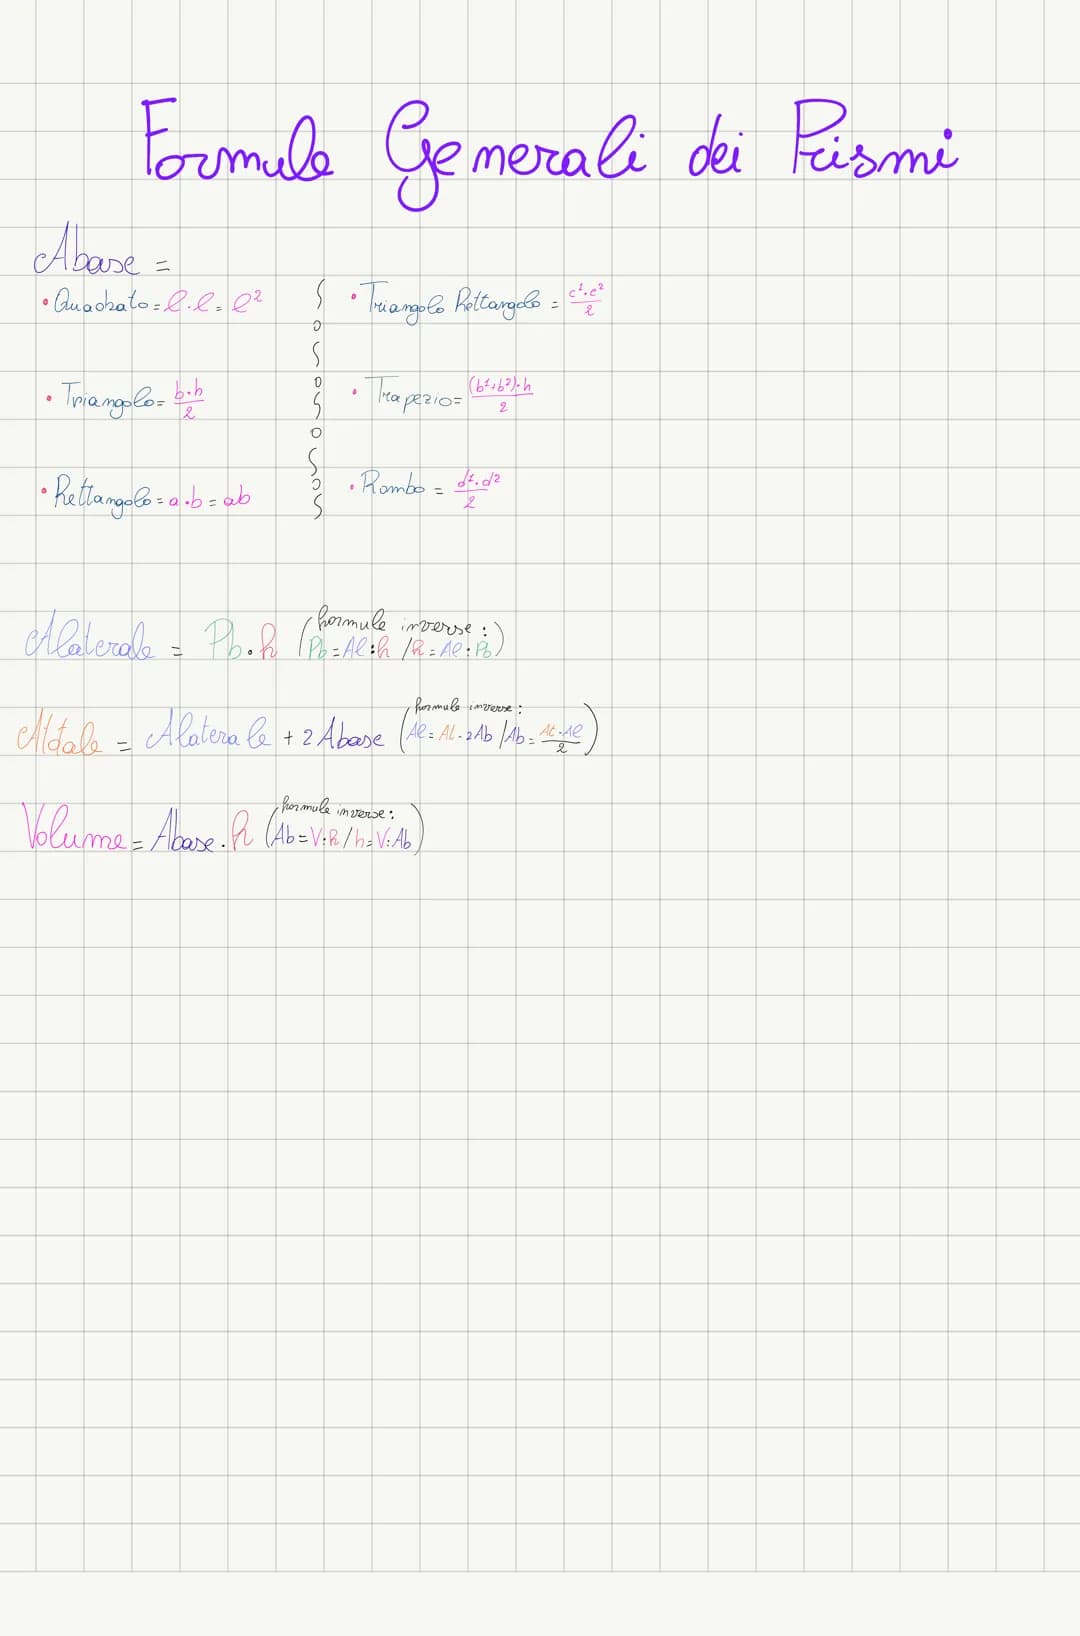 Formule Generali dei Prismi
Abase =
• Quadrato = l · l = l²
• Triangolo = b·h/2
• Rettangolo = a·b = ab
• Triangolo Rettangolo = c¹·c²/2
• Trapezio = (b¹+b²)·h/2
• Rombo = d¹·d²/2
Alaterale = Pb·h (formule inverse: Pb = Al:h / h = Al:Pb)
Atotale = Alaterale + 2 Abase (formule inverse: Al = At - 2Ab / Ab = At-Al/2)
Volume = Abase · h (formule inverse: Ab = V:h / h = V:Ab)